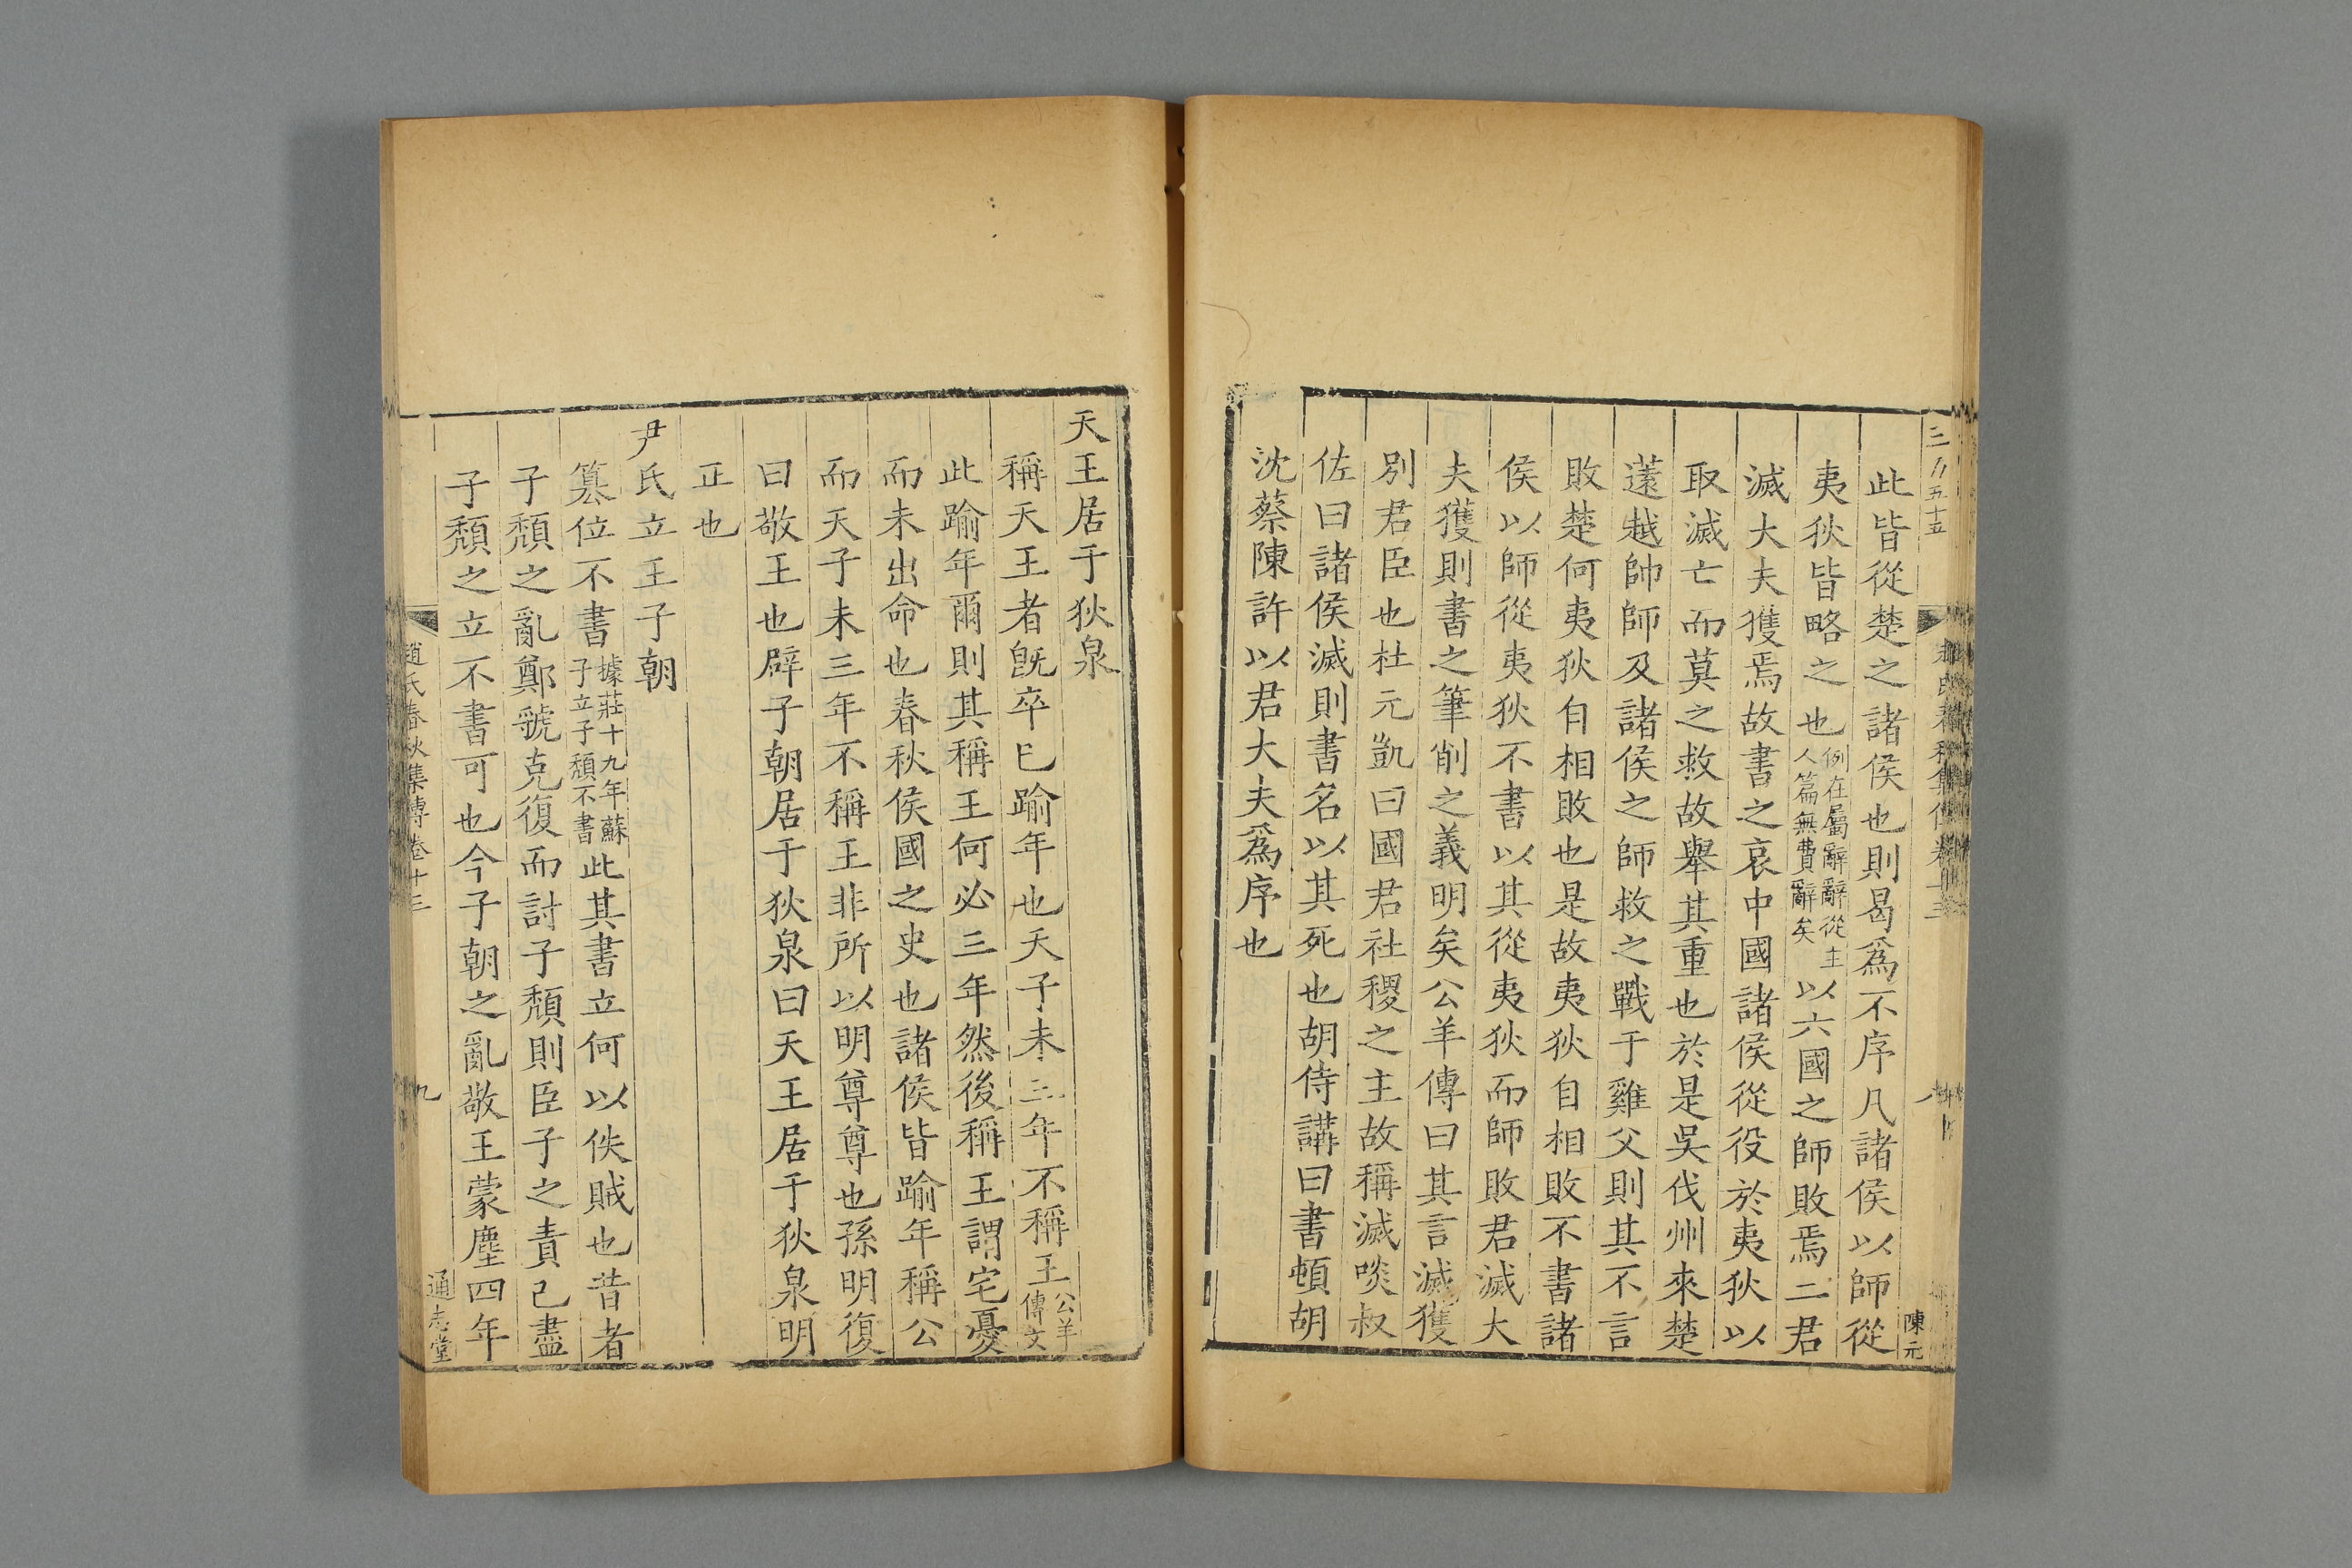 此皆從楚之諸侯也則曷爲不序凡諸侯以師從
夷狄皆略之也例在屬辭辭從主人篇無費辭矣以六國之師敗焉二君
滅大夫獲焉故書之哀中國諸侯從役於夷狄以
取滅亡而莫之救故舉其重也於是吳伐州來楚
薳越帥師及諸侯之師救之戰于雞父則其不言
敗楚何夷狄自相敗也是故夷狄自相敗不書諸
侯以師從夷狄不書以其從夷狄而師敗君滅大
夫獲則書之筆削之義明矣公羊傳曰其言滅獲
別君臣也杜元凱曰國君社稷之主故稱滅啖叔
佐曰諸侯滅則書名以其死也胡侍講曰書頓胡
沈蔡陳許以君大夫爲序也
陳元
天王居于狄泉
稱天王者旣卒巳踰年也天子未三年不稱王公羊傳文
此踰年爾則其稱王何必三年然後稱王謂宅憂
而未出命也春秋侯國之史也諸侯皆踰年稱公
而天子未三年不稱王非所以明尊尊也孫明復
曰敬王也辟子朝居于狄泉曰天王居于狄泉明
正也
尹氏立王子朝
簒位不書據莊十九年蘇子立子頹不書此其書立何以佚賊也昔者
子頹之亂鄭虢克復而討子頹則臣子之責已盡
子頹之立不書可也今子朝之亂敬王蒙塵四年
趙氏春秋集傳卷十三
九
通志堂